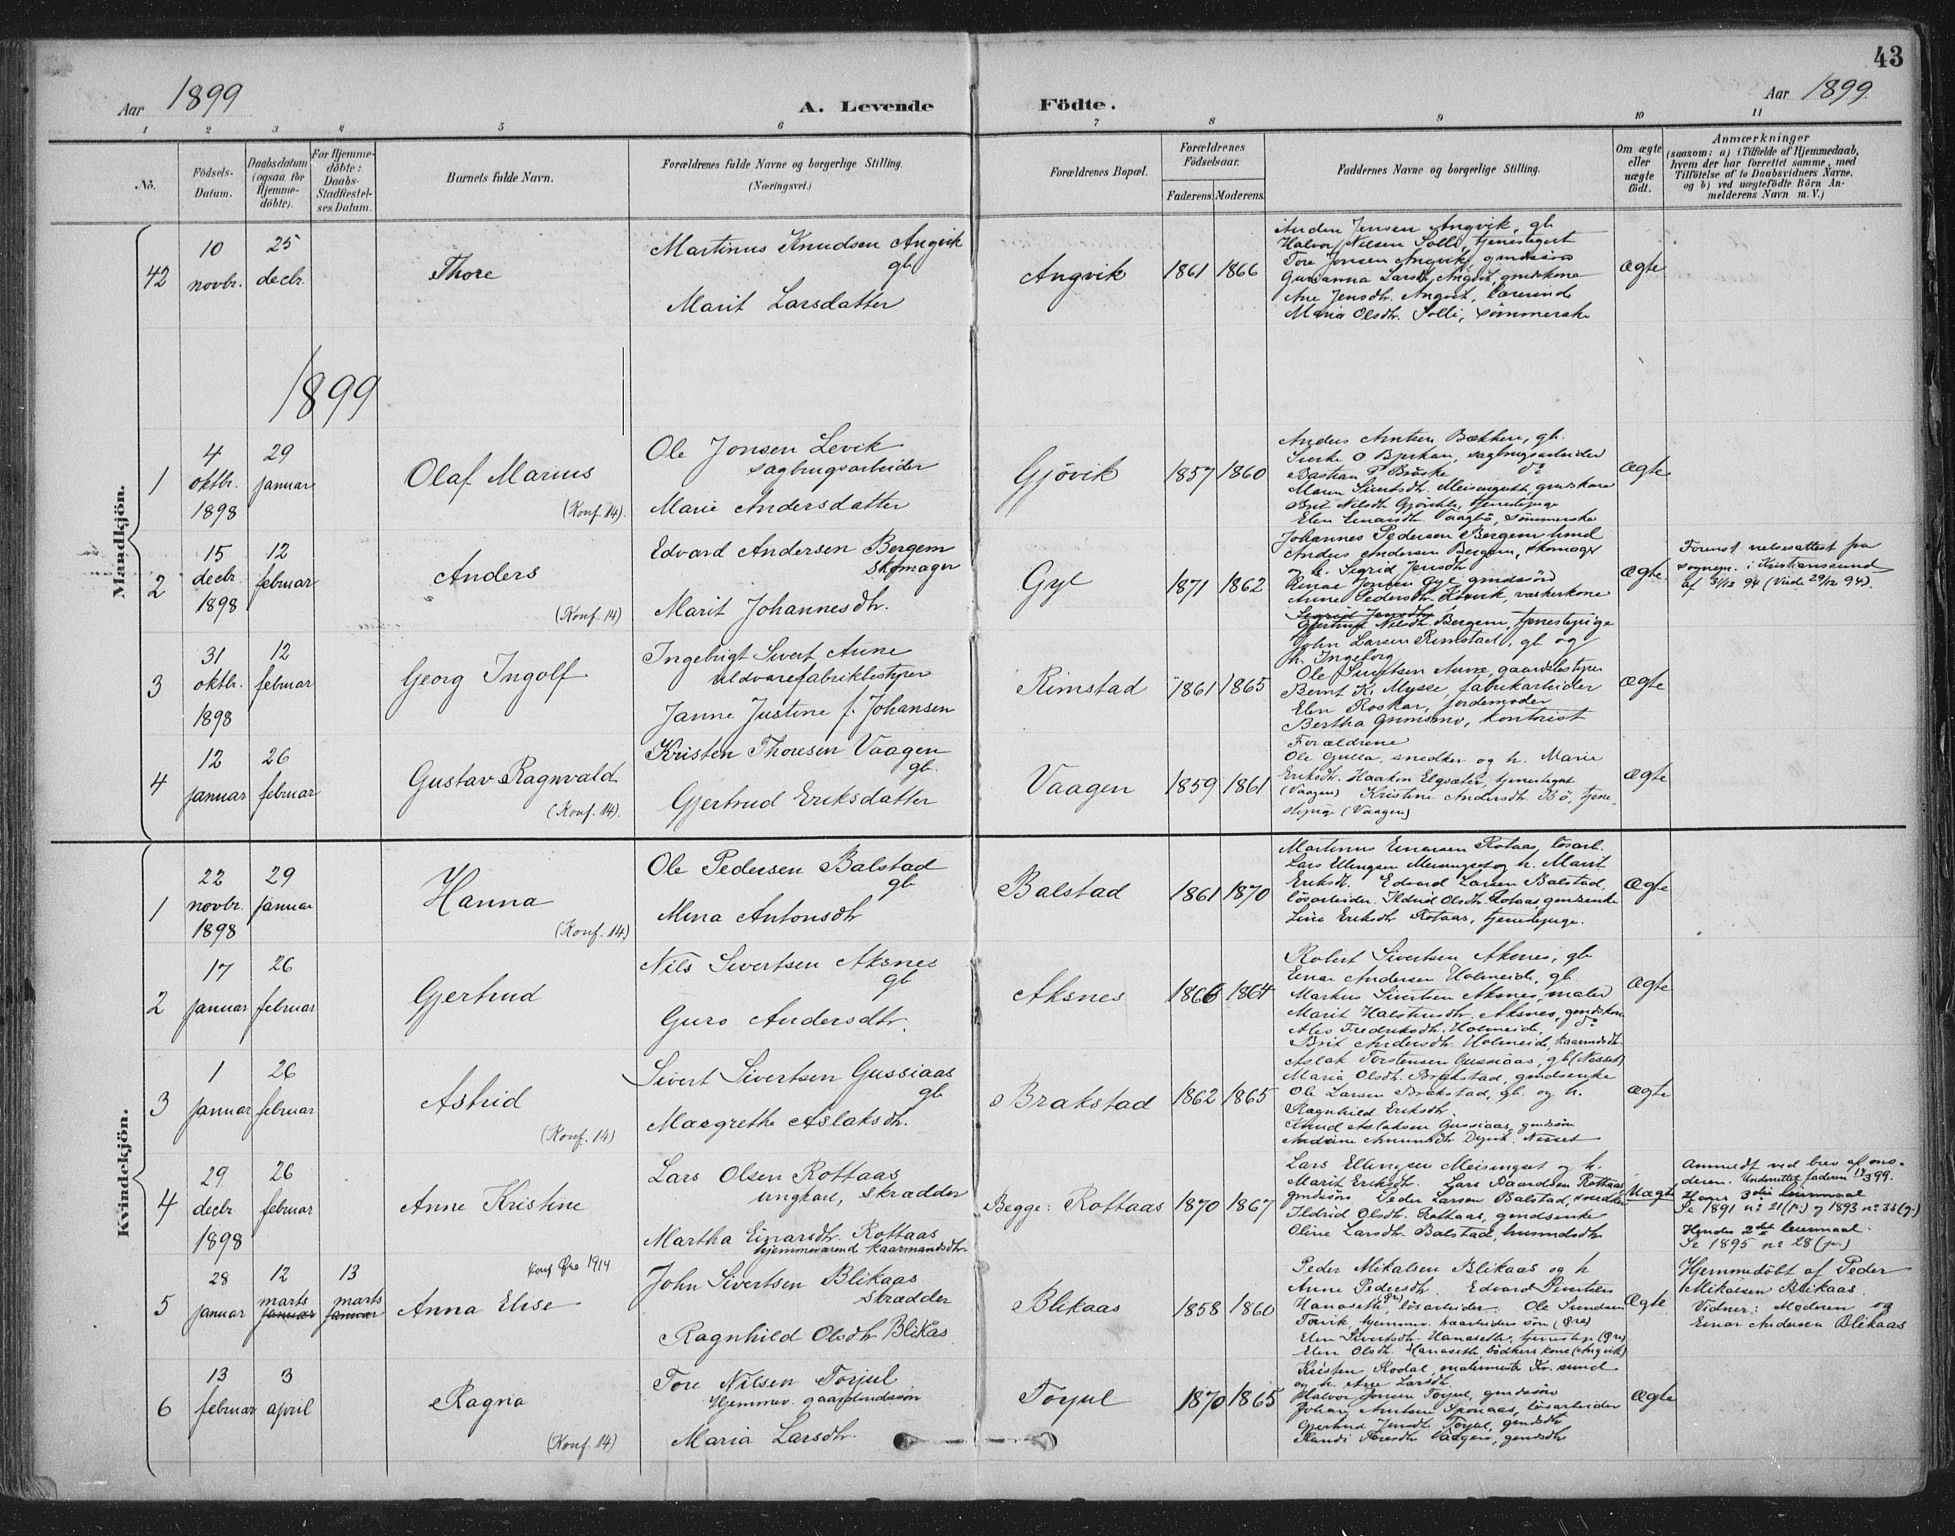 43
Aar 1899
A. Levende Födte.
Aar 1899.
1 2 3 4 5 6 7 8 9 10 11
No.
Födsels-Datum.
Daabsdatum (ogsaa for Hjemme-döbte).
For Hjemme-döbte: Daabs-Stadfæstel-ses Datum.
Barnets fulde Navn.
Forældrenes fulde Navne og borgerlige Stilling.
(Næringsvei.)
Forældrenes Bopæl.
Forældrenes Födselsaar.
Faderens. Moderens.
Faddernes Navne og borgerlige Stilling.
Om ægte eller uægte födt.
Anmærkninger
(saasom: a) i Tilfælde af Hjemmedaab,
hvem der har forrettet samme, med
Tilföielse af to Daabsvidners Navne,
og b) ved uægtefödte Börn An-
melderens Navn m. V.)
Mandkjön.
42
10 novbr.
25 decbr.
Thore
Martinus Knudsen Angvik
gb
Marit Larsdatter
Angvik
1861 1866
Anders Jensen Angvik, gb
Halvor Nilsen Solli, tjenestegut
Tore Jonsen Angvik, gmdssön
Gurianna Larsdtr. Angvik, gmdskone
Ane Jensdtr. Angvik, lærerinde
Maria Olsdtr. Solli, sömmerske
Ægte
1899
1
4 oktbr. 1898
29 januar
Olaf Marius
(Konf. 14).
Ole Jonsen Levik
sagbrugsarbeider
Marie Andersdatter
Gjövik
1857 1860
Anders Arntsen Bækken, gb.
O Bjerkan, sagbrugsarbeider
Bastian P Brüske do
Maren Sivertsdtr. Meisingset, gmdskone
Brit Nilsdtr Gjörkle, tjenestepige
Elen Einarsdtr. Vaagbö, sömmerske
Ægte
2
15 decbr. 1898
12 februar
Anders
(Konf. 14)
Edvard Andersen Bergem
skomager
Marit Johannesdtr.
Gyl
1871 1862
Johannes Pedersen Bergem hmd
Anders Andersen Bergem, skomager
og h. Sigrid Jensdtr
Einar Jonsen Gyl gmdssön
Anne Pedersdtr. vaskerkone
Sigrid Jensdtr
Gjertrud Nilsdtr. Bergem, tjenestepige
Ægte.
Forenst. vielsesattest fra
sogнepr. i Kristianssund
af 3/12 94 (Viede 29/12 94).
3
31 oktbr. 1898
12 februar
Georg Ingolf
Ingebrigt Sivert Aune
uldvarefabrikbestyrer
Janne Justine f. Johansen
Rimstad
1861 1865
John Larsen Rimstad, gb og
h. Ingeborg
Ole Sivertsen Aune, gaardsbestyrer
Bernt K. Mysse, fabrikarbeider
Elen Roskar, jordemoder
Bertha Grimsmo, kontorist
Forældrene
Ægte
4
12 januar
26 februar
Gustav Ragnvald
(Konf. 14).
Kristen Thoresen Vaagen
gb.
Gjertrud Eriksdatter
Vaagen
1859 1861
Ole Gulla, snedker og h. Marie
Eriksdtr. Haaken Elgsæter, tjenestegut
(Vaagen) Kristine Andersdtr. Bö, tjene-
stepige (Vaagen)
Ægte
Kvindekjön.
1
22 novbr. 1898
29 januar
Hanna
(Konf. 14)
Ole Pedersen Balstad
gb
Mina Antonsdtr
Balstad
1861 1870
Martinus Einarsen Rotaas, lösarb.
Lars Ellingsen Meisingset og h. Marit
Eriksdtr. Edvard Larsen Balstad,
lösarbeider. Ildrid Olsdtr. Rotaas, gmdsenke
Line Eriksdtr Rotaas, tjenestepige.
Ægte
2
17 januar
26 februar
Gjertrud
Nils Sivertsen Aksnes
gb
Guro Andersdtr.
Aksnes
1866 1864
Robert Sivertsen Aksnes, gb
Einar Andersen Holmeide, gb
Markus Sivertsen Aksnes, maler
Marit Halstensdtr. Aksnes, gmdskone
Ales Fredriksdtr. Holmeide, do
Brit Andersdtr. Holmeide, kaarmdsdtr
Ægte
3
1 januar
26 februar
Astrid
(Konf. 14)
Sivert Sivertsen Gussiaas
gb
Margrethe Aslaksdtr.
Brakstad
1862 1865
Aslak Torstensen Gussiaas, gb (Nesset)
Maria Olsdtr. Brakstad, gmdsenke
Ole Larsen Brakstad, gb. og h.
Ragnhild Eriksdtr.
Knud Aslaksen Gussiaas, gmdssön
Andrine Amundsdtr Nesset
Ægte
4
29 decbr 1898
26 februar
Anne Kristine
Konf Öre 1914
Lars Olsen Rottaas
ungkarl, skrædder
Martha Einarsdtr. Rottaas
hjemmeværend kaarmandsdtr.
Begge: Rottaas
1870 1867
Lars Ellingsen Meisingset og h.
Marit Eriksdtr. Lars Baardsen Rottaas,
gmdssön Peder Larsen Balstad, snedker
Ildrid Olsdtr. Rottaas, gmdsenke
Oline Larsdtr. Balstad, husmdsdtr
Uægte
Anmeldt ved brev af mo-
deren. Underrettet faderen 14/3 99.
Hans 3die leiermaal
Se 1891 nr 21(p.) og 1893 nr. 33(g.)
Hendes 2det leiermaal.
Se 1895 nr 28 (p.)
5
28 januar
12 marts januar
13 marts januar
Anna Elise
John Sivertsen Blikaas
skrædder
Ragnhild Olsdtr Blikaas
Blikaas
1858 1860
Peder Mikalsen Blikaas og h
Anne Pedersdtr. Edvard Sivertsen
Hanaseth (Öre), lösarbeider. Ole
hjemmev. (Öre)
Elen Sivertsdtr. Hanaseth, tjenestep (Öre)
Elen Olsdtr. Hanaseth, bödkers kone (Angvik)
Ægte
Hjemmedöbt af Peder
Mikalsen Blikaas.
Vidner: Moderen og
Einar Andersen Blikaas
6
13 februar
3 april
Ragna
(Konf. 14)
Tore Nilsen Torjul
Hjemmev. gaardmdssön
Maria Larsdtr.
Torjul
1870 1865
Kristen Rodal, malermester Kr. sund
og h. Ane Larsdtr.
Halvor Jonsen Torjul, gmdssön
Johan Arntsen lösarbeider
Gjertrud Jensdtr Torjul, gmdsdtr
Randi Toresdtr Vaagen, gmdsdtr
Ægte